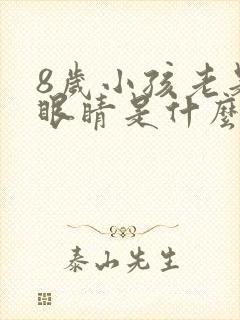 8歲小孩老是
眼睛是什麼
泰山先生